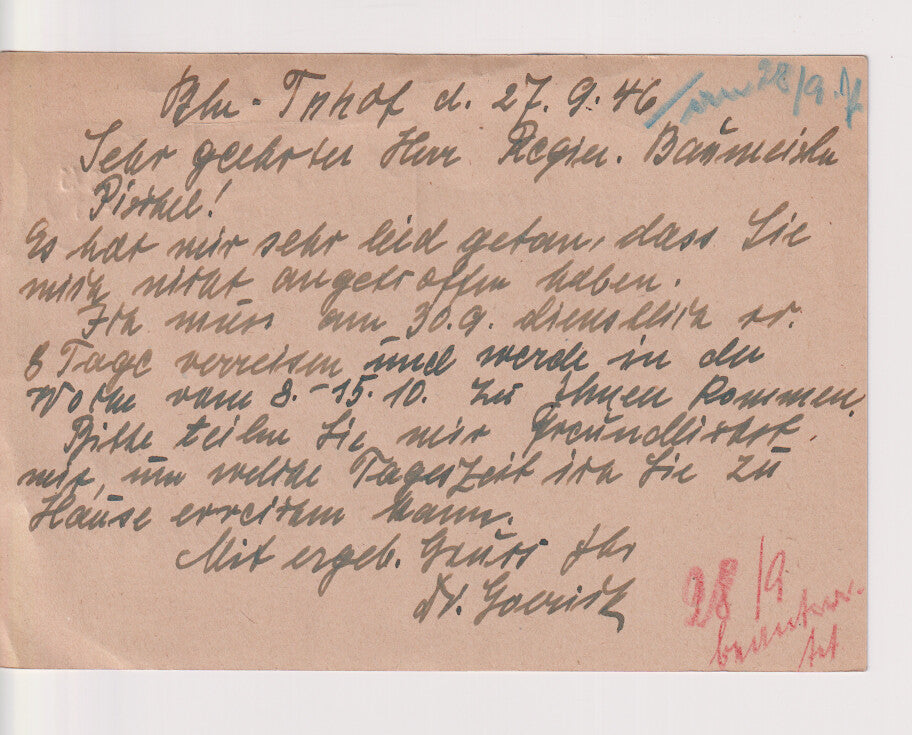 Bln - Tphof d. 27. 9. 46
28/9.
Sehr geehrter Herr Regier. Baumeister
Es hat mir sehr leid getan, dass Sie
mich nicht angetroffen haben.
Ich muss am 30.9. dienstlich
8 Tage verreisen und werde in der
Woche vom 8.-15.10. zu Ihnen kommen.
Bitte teilen Sie mir freundlichst
mit, um welche Tageszeit ich Sie zu
Hause erreichen kann.
Mit ergeb. Gruss Ihr
Dr.
28/9
beantwor-
tet